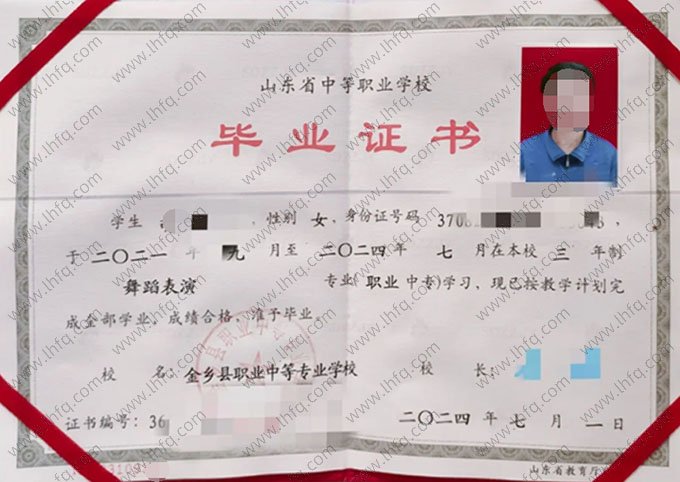 山东省中等职业学校
毕业证书
学生 ，性别 女，身份证号码 3708 ，
于二〇二一 年 九 月至 二〇二四年 七 月在本校 三 年制
舞蹈表演 专业(职业中专)学习，现已按教学计划完
成全部学业，成绩合格，准予毕业。
校 名：金乡县职业中等专业学校 校 长：
证书编号：36 二〇二四 年 七 月 一日
山东省教育厅
www.lhfq.com